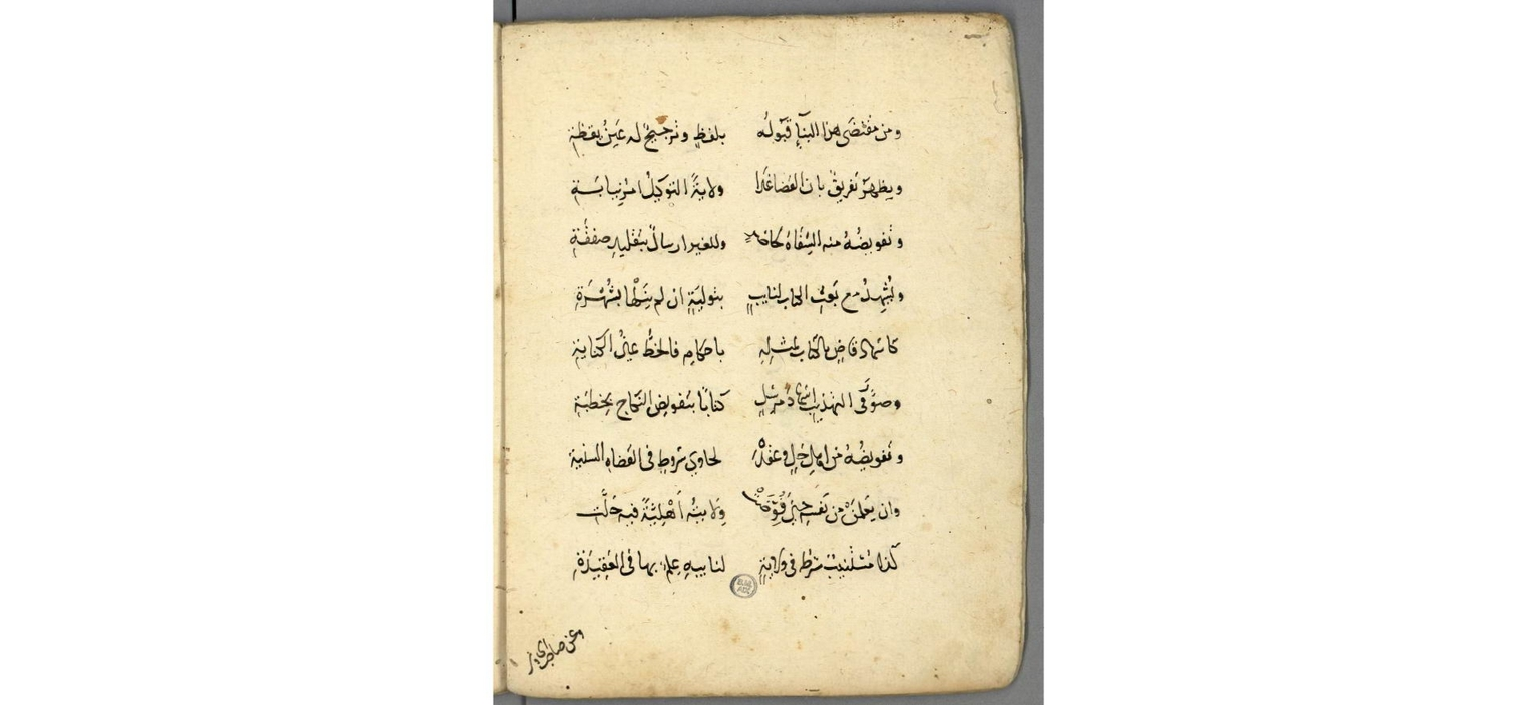 ومن مقتضى هذا البنآء قبوله بلفظٍ وترجيحٌ له عَينُ يقظةِ
ويظهر تفريقٌ بان القضا غدا ولايةً التوكيلُ امر نيابة
وتفويضُهُ منه الشِفَاهُ وللغير ارسالٌ بتقليدِ صفقةِ
وليُشهِدْ مع بَعثِ الكتاب لنايبٍ بتوليةٍ ان لم ينطها بشُهْرَةِ
كاشهاد قاضٍ بالكتاب لمثلهِ باحكام فالخطُّ الكتابةِ
وصوَّبَ فى التهذيب كتابًا بتفويض النكاح بخطبةِ
وتفويضُهُ من اهل حَلٍ وعقدهِ لحاوي شروطٍ فى القضاءِ السنية
وان يَعلمَنْ من نفسه حين فُوِّضَتْ ولايتُه أهْليّةً فيه حَلَّت
كذا شرط فى ولايةٍ لنايبهِ علمٌ بها فى العَقِيدَةِ
وعن صاحب